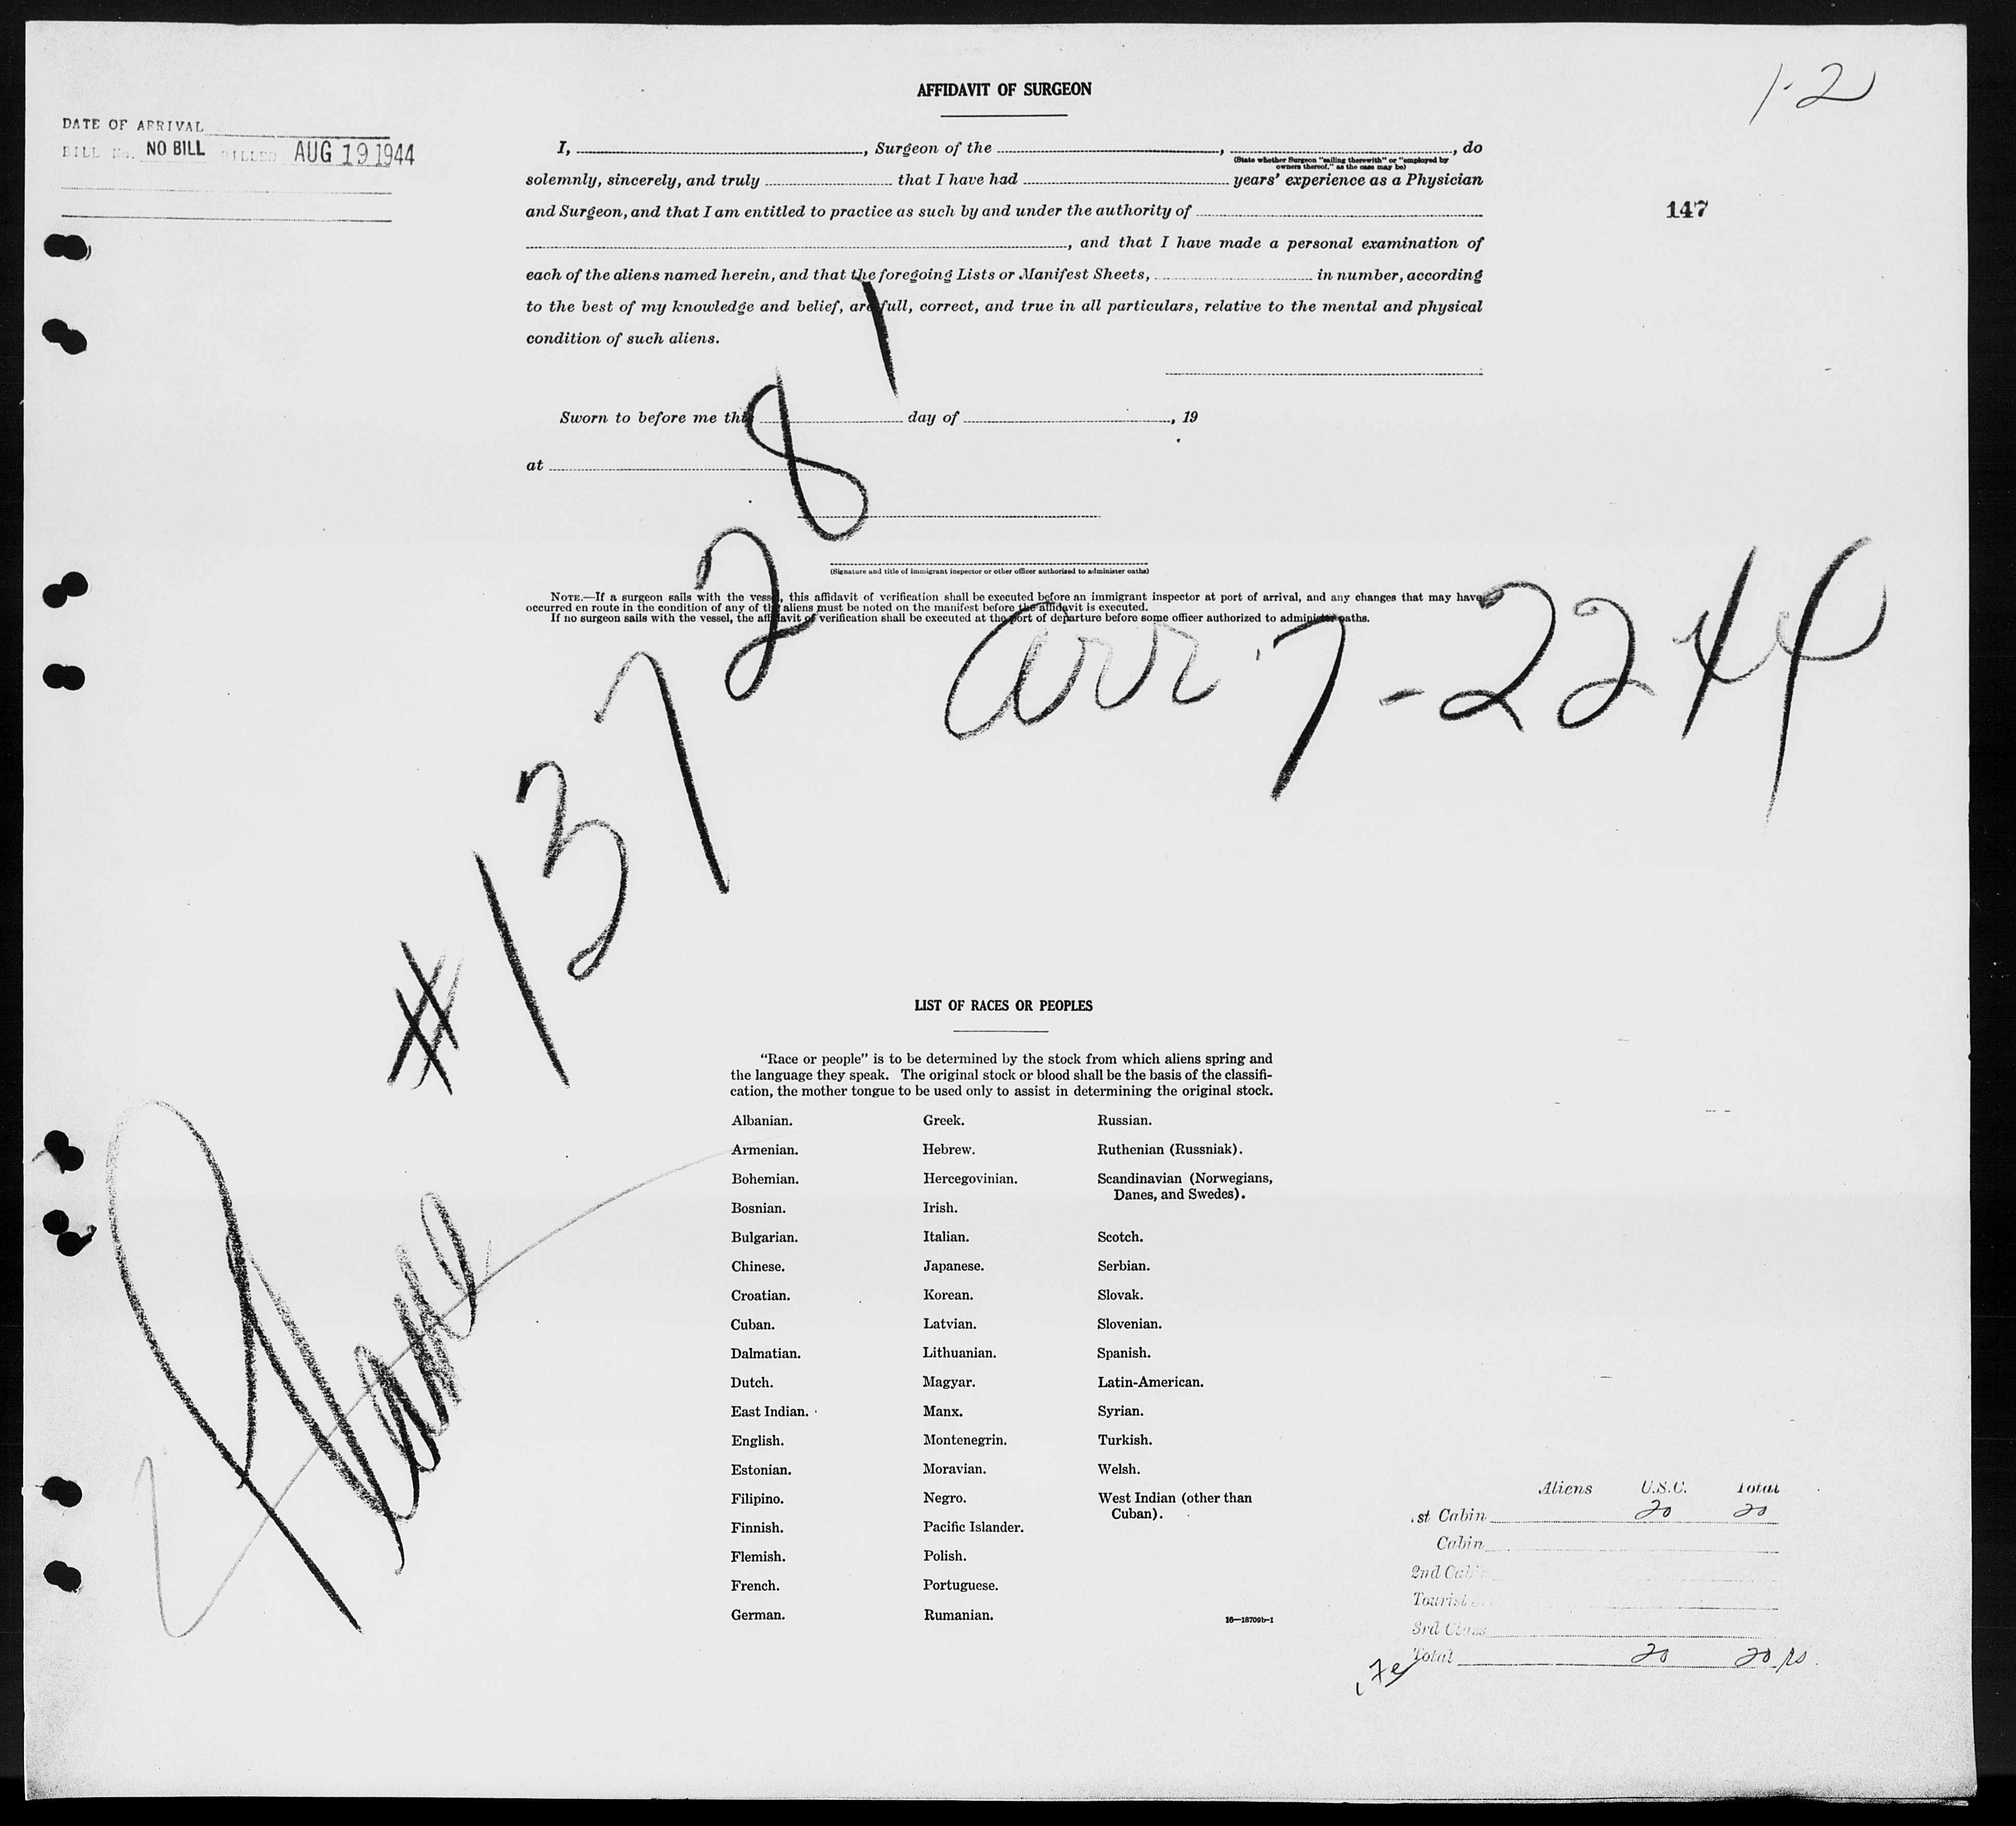 1-2
AFFIDAVIT OF SURGEON
DATE OF ARRIVAL
BILL No. NO BILL BILLED AUG 19 1944
I, , Surgeon of the , , do
(State whether Surgeon "sailing therewith" or "employed by
owners thereof," as the case may be)
solemnly, sincerely, and truly that I have had years' experience as a Physician
and Surgeon, and that I am entitled to practice as such by and under the authority of
147
, and that I have made a personal examination of
each of the aliens named herein, and that the foregoing Lists or Manifest Sheets, in number, according
to the best of my knowledge and belief, are full, correct, and true in all particulars, relative to the mental and physical
condition of such aliens.
Sworn to before me this day of , 19
at
(Signature and title of immigrant inspector or other officer authorized to administer oaths)
NOTE.—If a surgeon sails with the vessel, this affidavit of verification shall be executed before an immigrant inspector at port of arrival, and any changes that may have
occurred en route in the condition of any of the aliens must be noted on the manifest before the affidavit is executed.
If no surgeon sails with the vessel, the affidavit of verification shall be executed at the port of departure before some officer authorized to administer oaths.
arr 7-22 44
Plane #137281
LIST OF RACES OR PEOPLES
"Race or people" is to be determined by the stock from which aliens spring and
the language they speak. The original stock or blood shall be the basis of the classifi-
cation, the mother tongue to be used only to assist in determining the original stock.
Albanian. Greek. Russian.
Armenian. Hebrew. Ruthenian (Russniak).
Bohemian. Hercegovinian. Scandinavian (Norwegians,
Danes, and Swedes).
Bosnian. Irish.
Bulgarian. Italian. Scotch.
Chinese. Japanese. Serbian.
Croatian. Korean. Slovak.
Cuban. Latvian. Slovenian.
Dalmatian. Lithuanian. Spanish.
Dutch. Magyar. Latin-American.
East Indian. Manx. Syrian.
English. Montenegrin. Turkish.
Estonian. Moravian. Welsh.
Filipino. Negro. West Indian (other than
Cuban).
Finnish. Pacific Islander.
Flemish. Polish.
French. Portuguese.
German. Rumanian.
16—18709b-1
Aliens U.S.C. Total
1st Cabin 20 20
Cabin
2nd Cabin
Tourist
3rd Class
Total 20 20